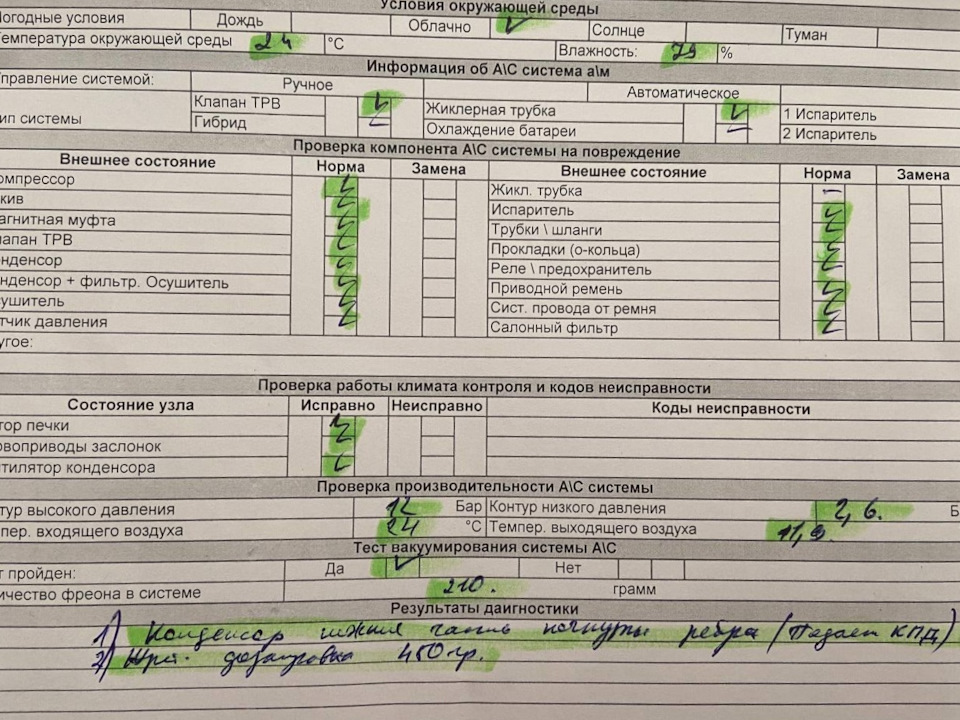 Условия окружающей среды
Погодные условия Дождь Облачно Солнце Туман
Температура окружающей среды 24 °C Влажность: 79 %
Информация об A\C система а\м
Управление системой: Ручное Автоматическое
ип системы Клапан ТРВ Жиклерная трубка 1 Испаритель
Гибрид Охлаждение батареи 2 Испаритель
Проверка компонента A\C системы на повреждение
Внешнее состояние Норма Замена Внешнее состояние Норма Замена
омпрессор Жикл. трубка
кив Испаритель
агнитная муфта Трубки \ шланги
лапан ТРВ Прокладки (о-кольца)
онденсор Реле \ предохранитель
нденсор + фильтр. Осушитель Приводной ремень
ушитель Сист. провода от ремня
тчик давления Салонный фильтр
угое:
Проверка работы климата контроля и кодов неисправности
Состояние узла Исправно Неисправно Коды неисправности
тор печки
рвоприводы заслонок
нтилятор конденсора
Проверка производительности A\C системы
тур высокого давления 12 Бар Контур низкого давления 2,6. Б
пер. входящего воздуха 24 °C Темпер. выходящего воздуха 11,9
Тест вакуумирования системы A\C
т пройден: Да Нет
ичество фреона в системе 210. грамм
Результаты даигностики
1) Конденсор нижняя часть погнуты ребра (Падает КПД)
2) дозаправка 450 гр.